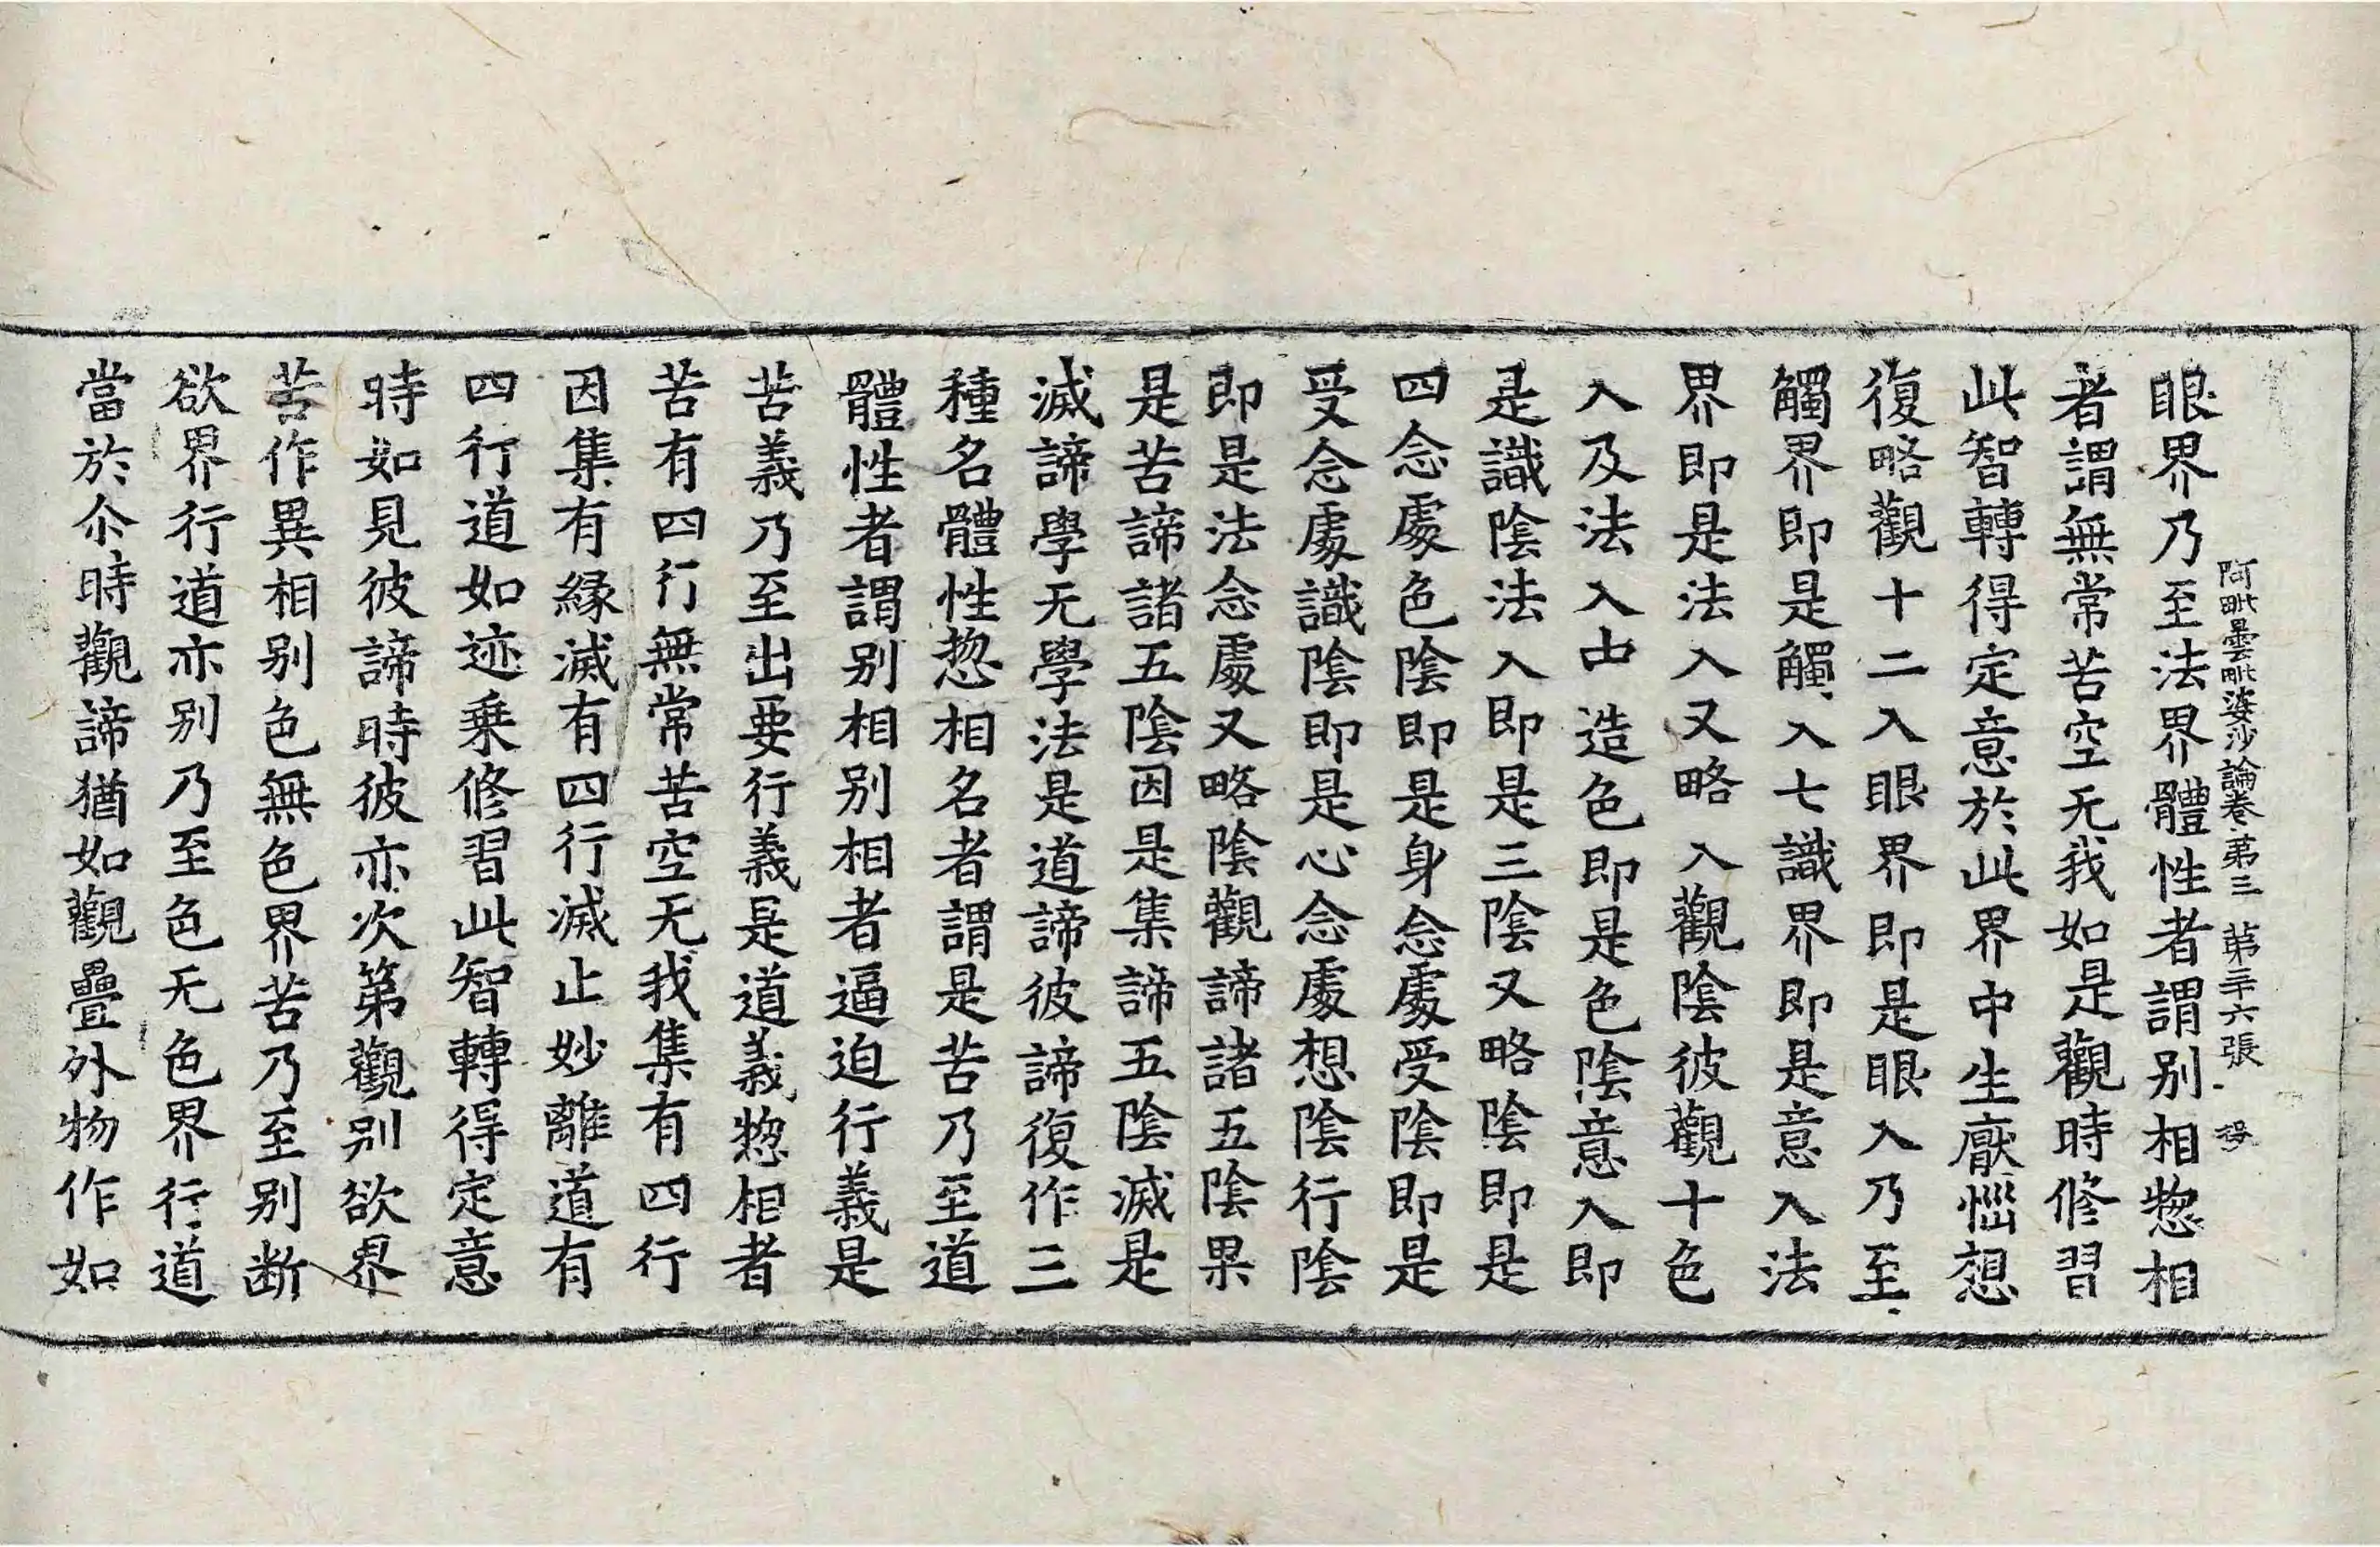 阿毗曇毗婆沙論卷第三 第三十六張 
眼界乃至法界體性者謂别相惣相
者謂無常苦空无我如是觀時修習
此智轉得定意於此界中生厭惱想
復略觀十二入眼界即是眼入乃至
觸界即是觸入七識界即是意入法
界即是法入又略入觀陰彼觀十色
入及法入中造色即是色陰意入即
是識陰法入即是三陰又略陰即是
四念處色陰即是身念處受陰即是
受念處識陰即是心念處想陰行陰
即是法念處又略陰觀諦諸五陰果
是苦諦諸五陰因是集諦五陰滅是
滅諦學无學法是道諦彼諦復作三
種名體性惣相名者謂是苦乃至道
體性者謂别相别相者逼迫行義是
苦義乃至出要行義是道義惣相者
苦有四行無常苦空无我集有四行
因集有緣滅有四行滅止妙離道有
四行道如迹乗修習此智轉得定意
時如見彼諦時彼亦次第觀别欲界
苦作異相别色無色界苦乃至别断
欲界行道亦别乃至色无色界行道
當於尒時觀諦猶如觀疊外物作如